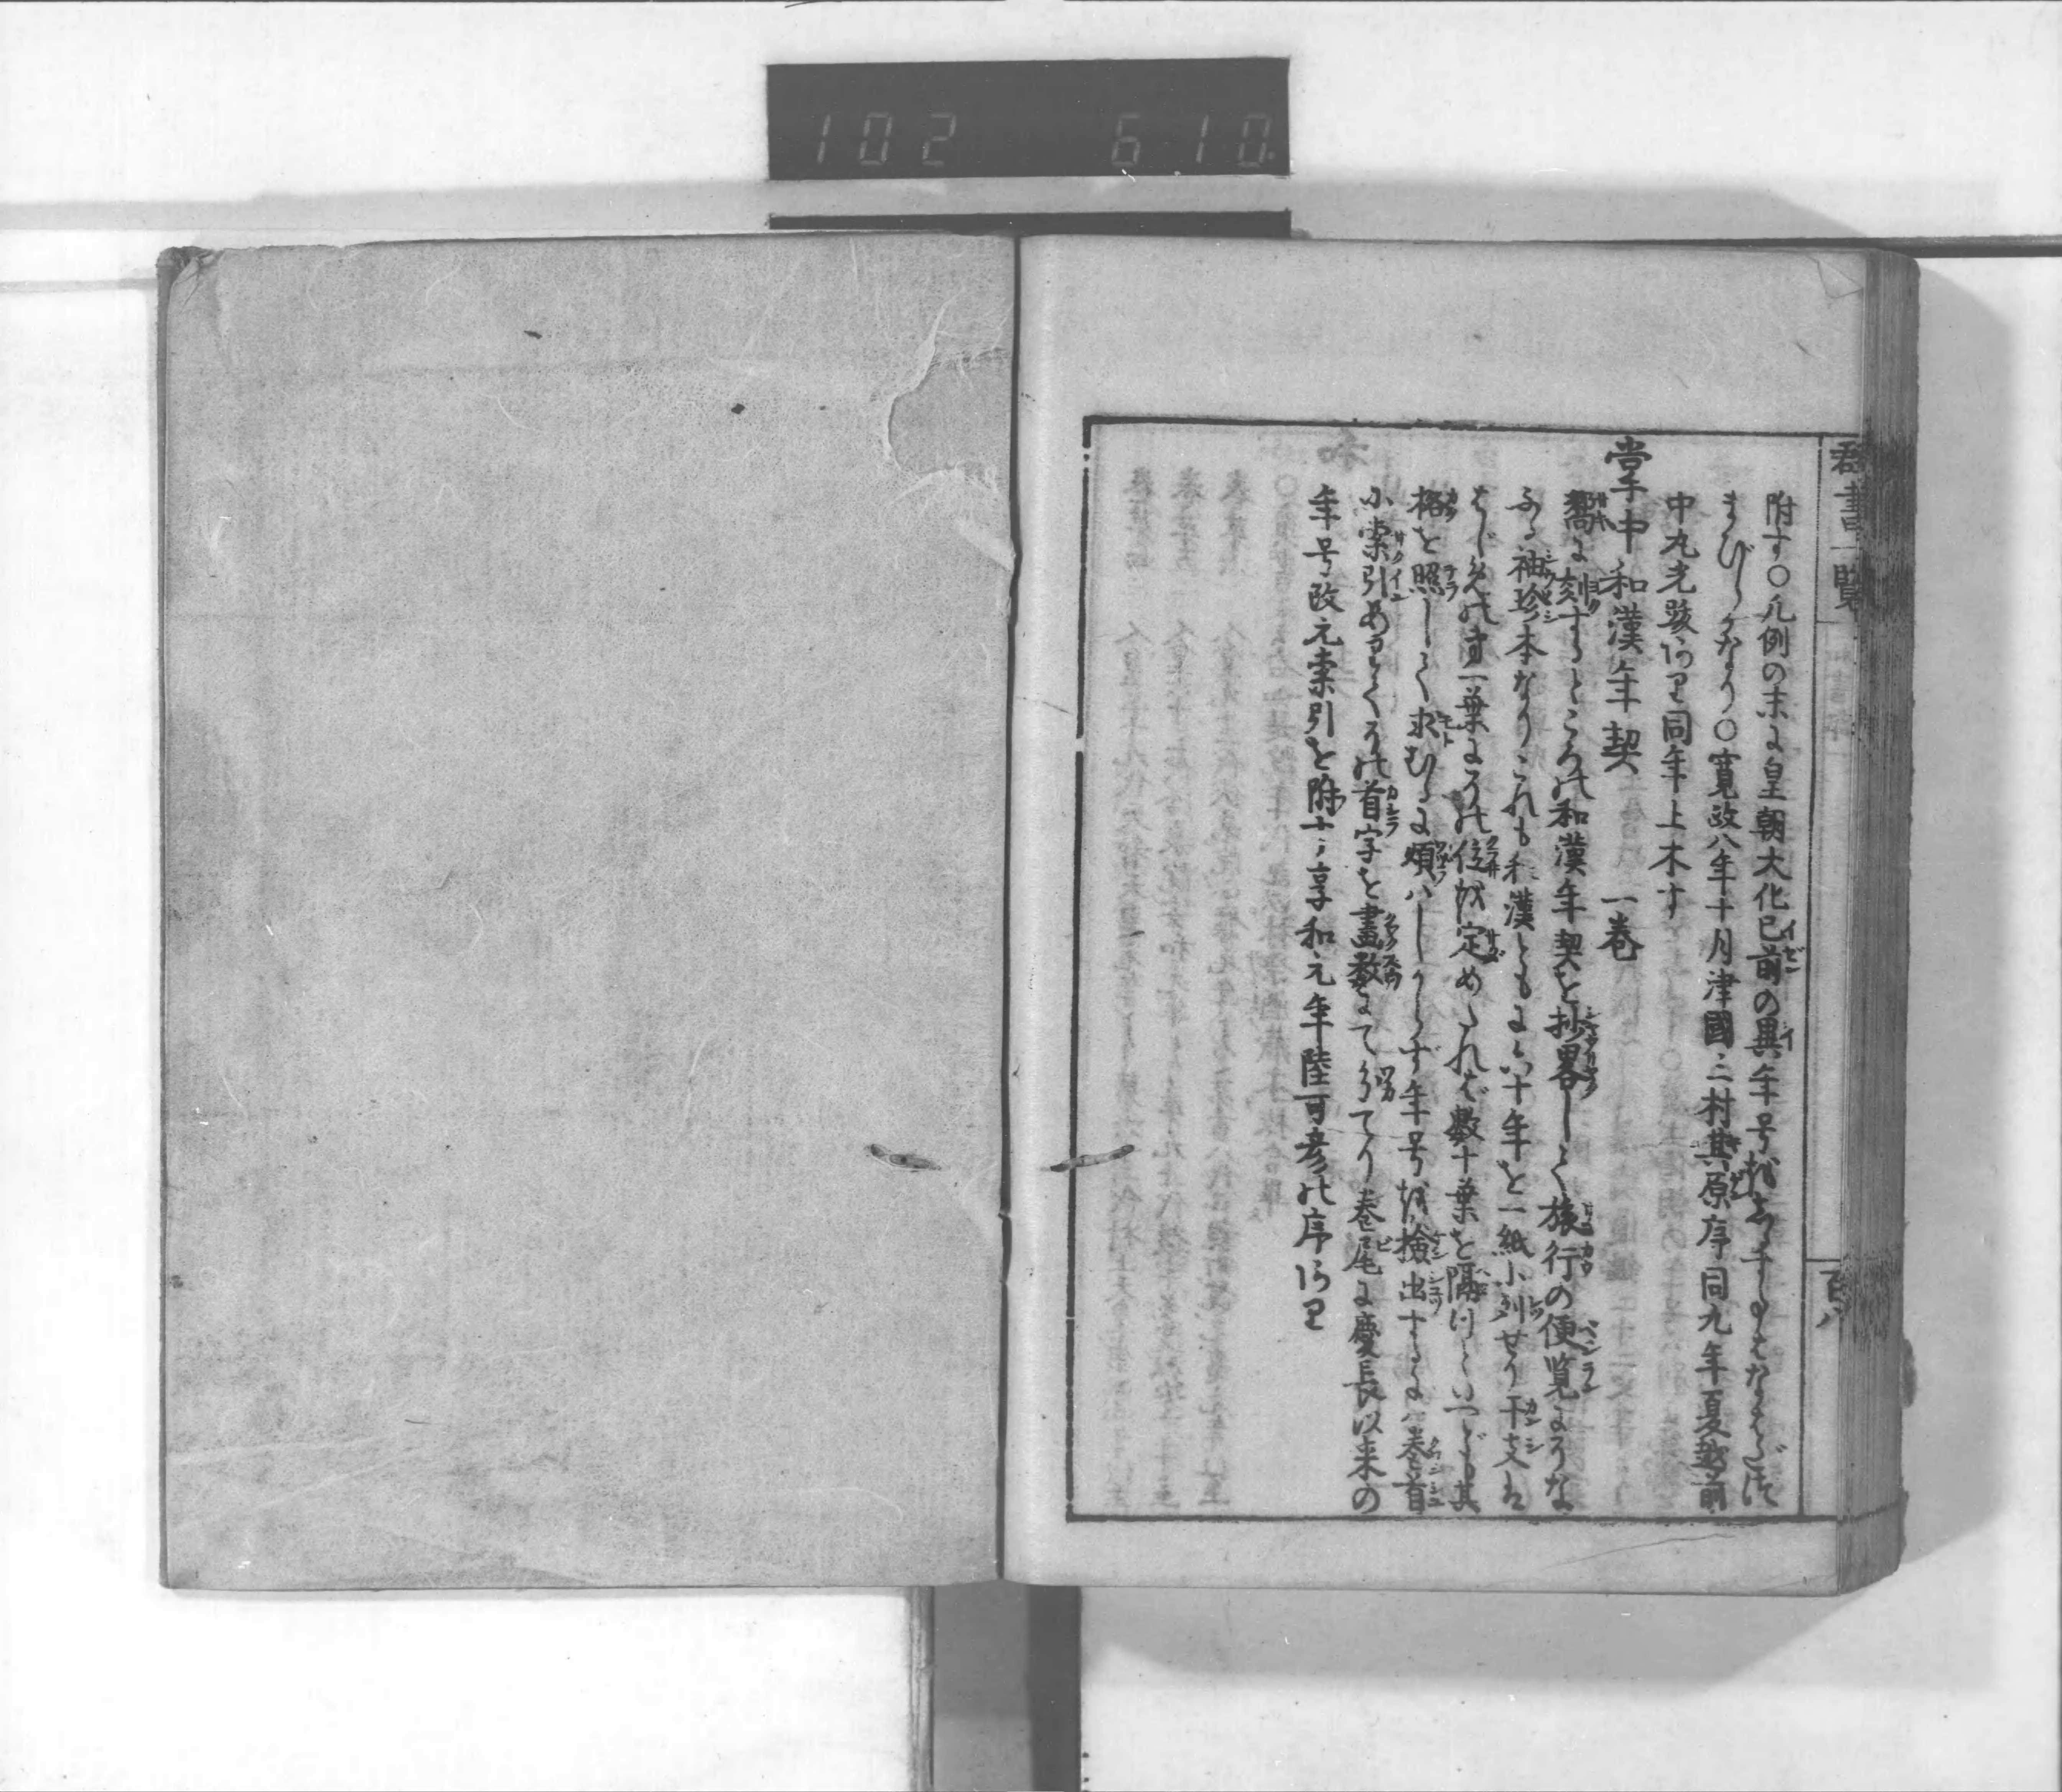 102 610
群書一覧
百八
附す〇凡例の末に皇朝大化已前の異年号
〇寛政八年十月津國三村其原序同九年夏越前
中丸光駿跋あり同年上木す
掌中和漢年契 一巻
嚮に刻するところの和漢年契を抄畧して旅行の便覧にそな
ふる袖珍本なりこれも和漢ともに六十年を一紙に列せり干支は
はじめの第一葉にその位を定めたれば数十葉を隔つといへども其
格を照して求むるに煩はしからず年号を撿出するには巻首
に索引ありてその首字を畫数にて分てり巻尾に慶長以来の
年号改元索引を附す享和元年陸可彦の序あり